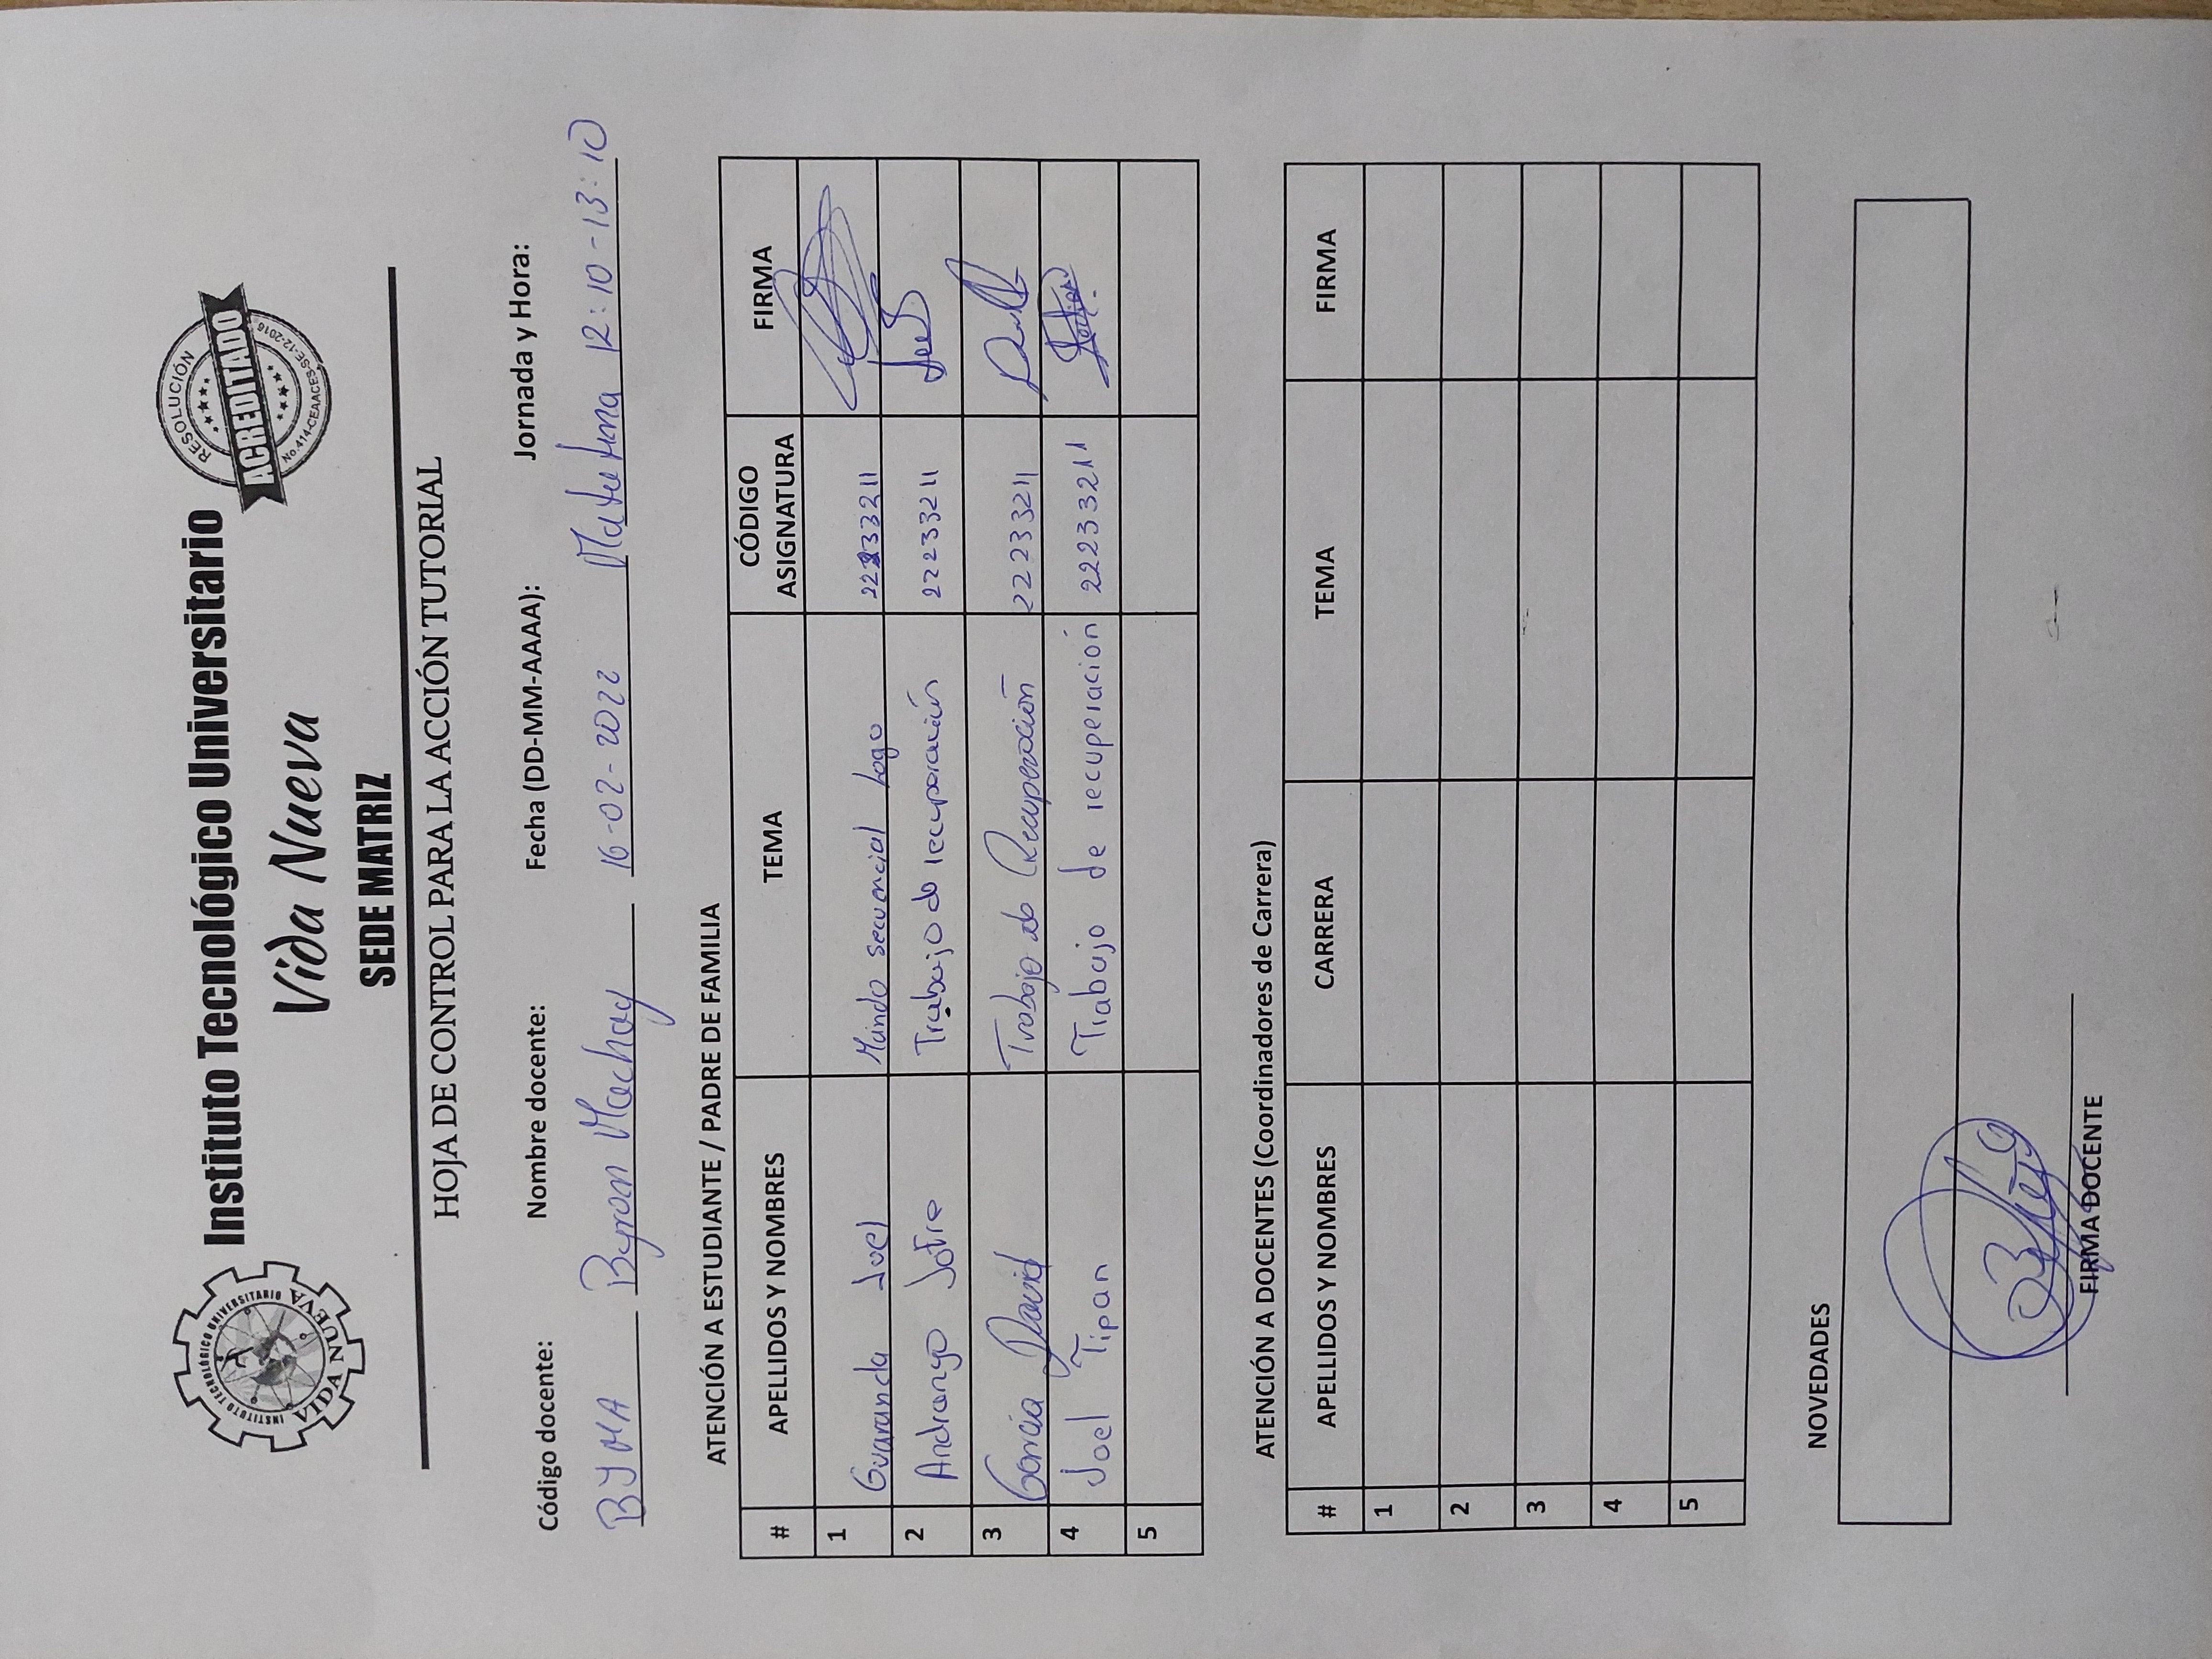 INSTITUTO TECNOLÓGICO UNIVERSITARIO
VIDA NUEVA
Instituto Tecnológico Universitario
Vida Nueva
SEDE MATRIZ
RESOLUCIÓN
ACREDITADO
No.414-CEAACES-SE-12-2016
HOJA DE CONTROL PARA LA ACCIÓN TUTORIAL
Código docente: Nombre docente: Fecha (DD-MM-AAAA): Jornada y Hora:
BYMA Byron Machay 16-02-2022 Matutina 12:10-13:10
ATENCIÓN A ESTUDIANTE / PADRE DE FAMILIA
# APELLIDOS Y NOMBRES TEMA CÓDIGO ASIGNATURA FIRMA
1 Guaranda Joel Mundo secuencial Logo 22233211
2 Andrango Jofre Trabajo de recuperación 22233211
3 García David Trabajo de Recuperación 22233211
4 Joel Tipan Trabajo de recuperación 22233211
5
ATENCIÓN A DOCENTES (Coordinadores de Carrera)
# APELLIDOS Y NOMBRES CARRERA TEMA FIRMA
1
2
3
4
5
NOVEDADES
FIRMA DOCENTE